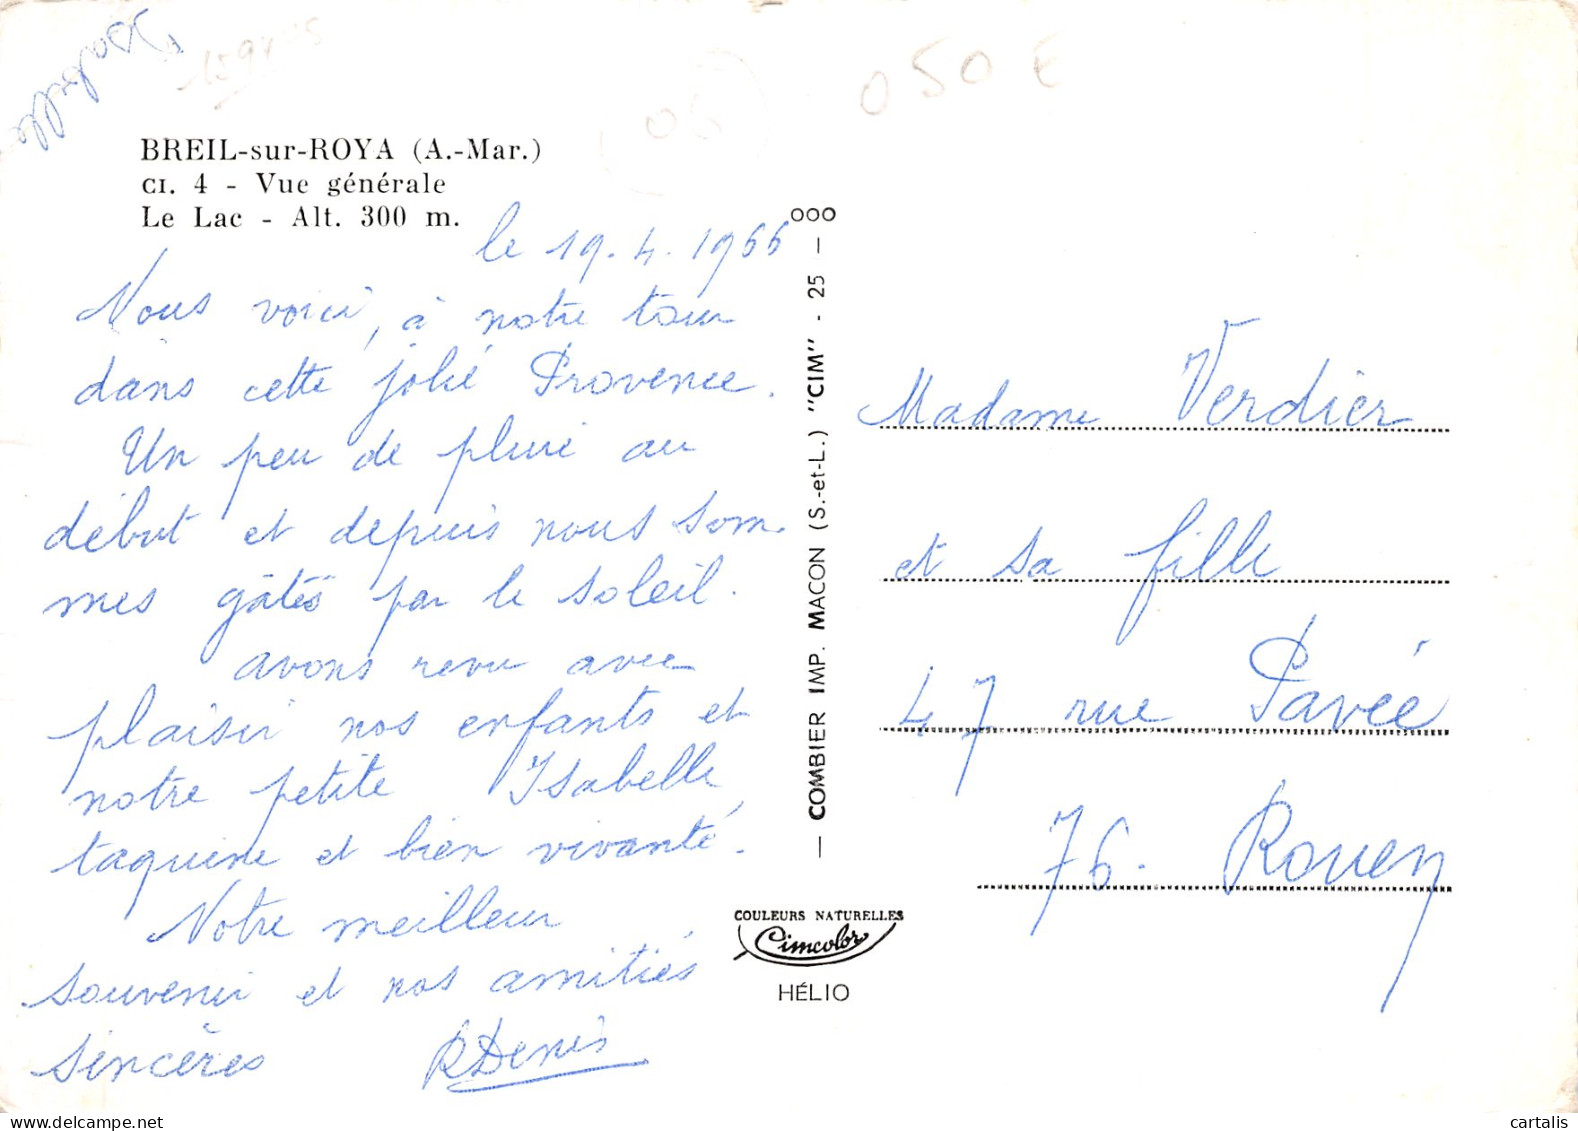 Isabelle
050 E
06
BREIL-sur-ROYA (A.-Mar.)
CI. 4 - Vue générale
Le Lac - Alt. 300 m.
le 19.4.1966
Nous voici, à notre tour
dans cette jolie Provence.
Un peu de pluie au
début et depuis nous som-
mes gâtés par le soleil.
avons revu avec
plaisir nos enfants et
notre petite Isabelle,
taquine et bien vivante.
Notre meilleur
souvenir et nos amitiés
sincères RDenis
— COMBIER IMP. MACON (S.-et-L.) "CIM" - 25 — 000
COULEURS NATURELLES
Cimcolor
HÉLIO
Madame Verdier
et sa fille
47 rue Pavée
76. Rouen
cartalis